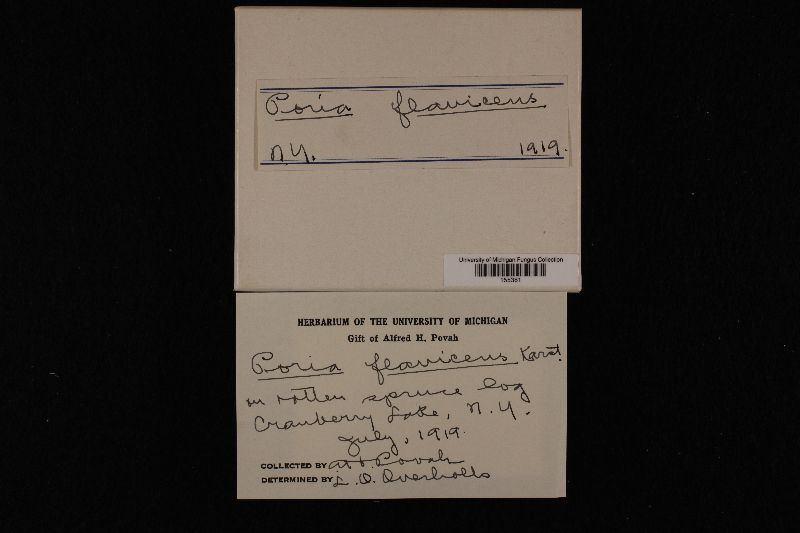 Poria flavicens
N.Y. 1919.
University of Michigan Fungus Collection
HERBARIUM OF THE UNIVERSITY OF MICHIGAN
Gift of Alfred H. Povah
Poria flavicens Karst.
on rotten spruce log
Cranberry Lake, N.Y.
July, 1919.
COLLECTED BY A.H. Povah
DETERMINED BY L. O. Overholts